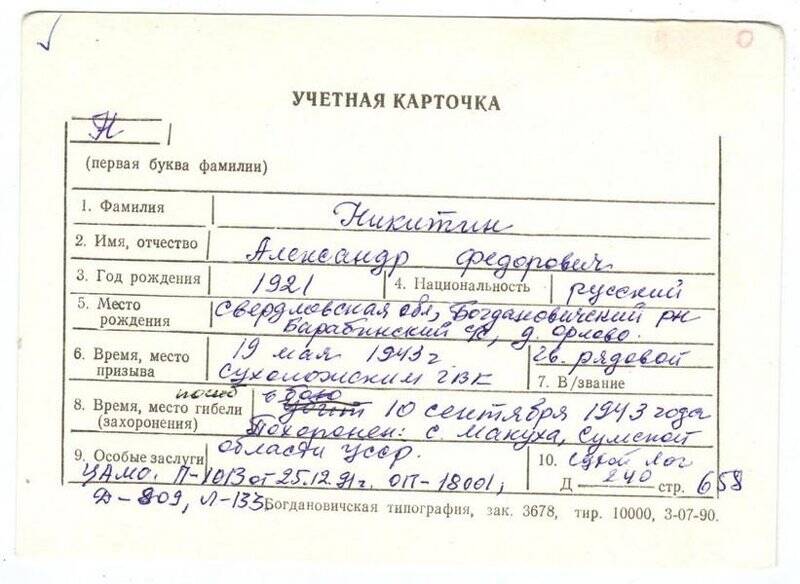 УЧЕТНАЯ КАРТОЧКА
Н
(первая буква фамилии)
1. Фамилия Никитин
2. Имя, отчество Александр Федорович
3. Год рождения 1921 4. Национальность русский
5. Место рождения Свердловская обл, Богдановичский рн
Барабинский с/с, д. Орлово.
6. Время, место призыва 19 мая 1943 г
Сухоложским ГВК
гв. рядовой
7. В/звание
8. Время, место гибели (захоронения) погиб в бою 10 сентября 1943 года
Похоронен: с. Макуха, Сумской
области УССР.
9. Особые заслуги
10. Сухой Лог
Д 240 стр. 658
ЦАМО. П-1013 от 25.12.91г. ОП-18001,
Д-809, Л-133
Богдановичская типография, зак. 3678, тир. 10000, 3-07-90.